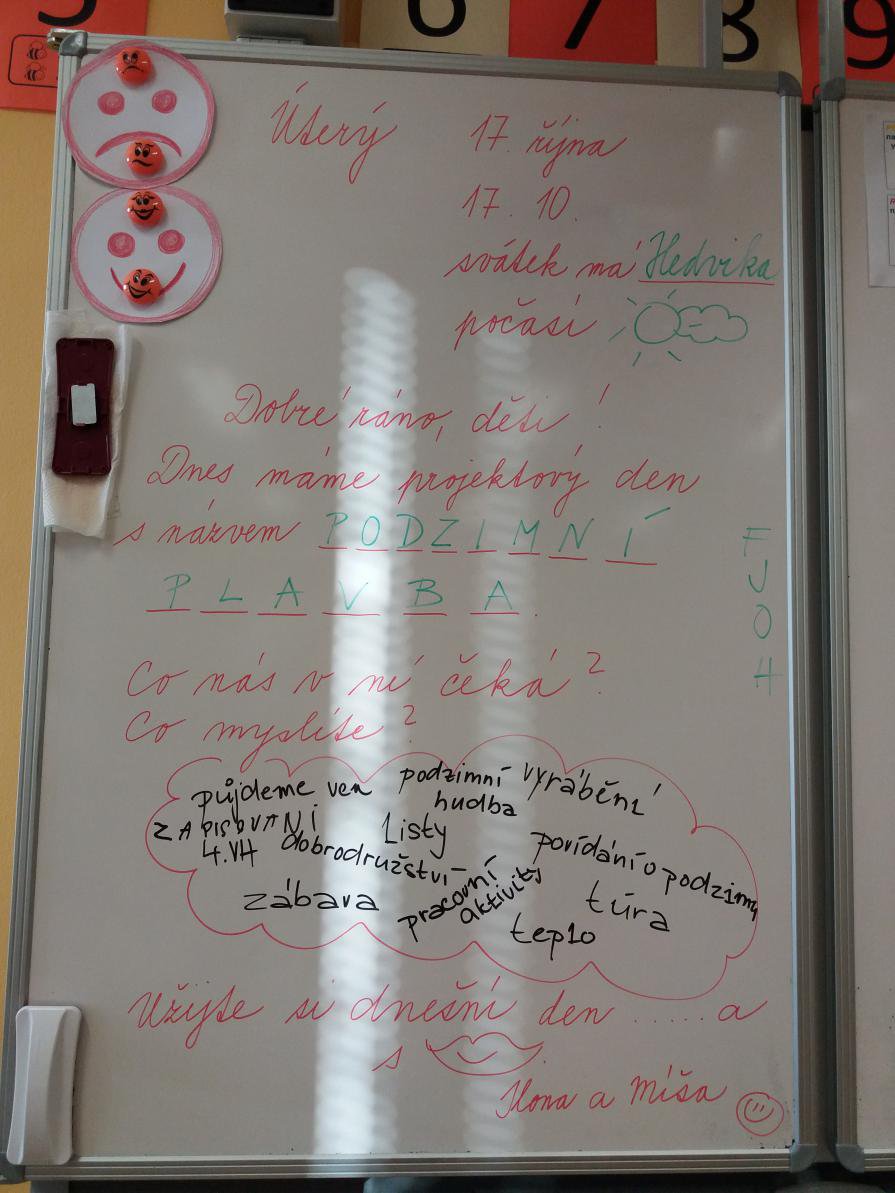 5 6 7 8 9
Úterý 17. října
17. 10.
svátek má Hedvika
počasí
Dobré ráno, děti!
Dnes máme projektový den
s názvem PODZIMNÍ
PLAVBA.
F
J
O
H
Co nás v ní čeká?
Co myslíte?
půjdeme ven
podzimní
hudba
vyrábění
ZAPISOVANÍ
4.VH
Listy
dobrodružství
povídání o podzimu
zábava
pracovní
aktivity
túra
teplo
Užijte si dnešní den ..... a
s
Ilona a Míša